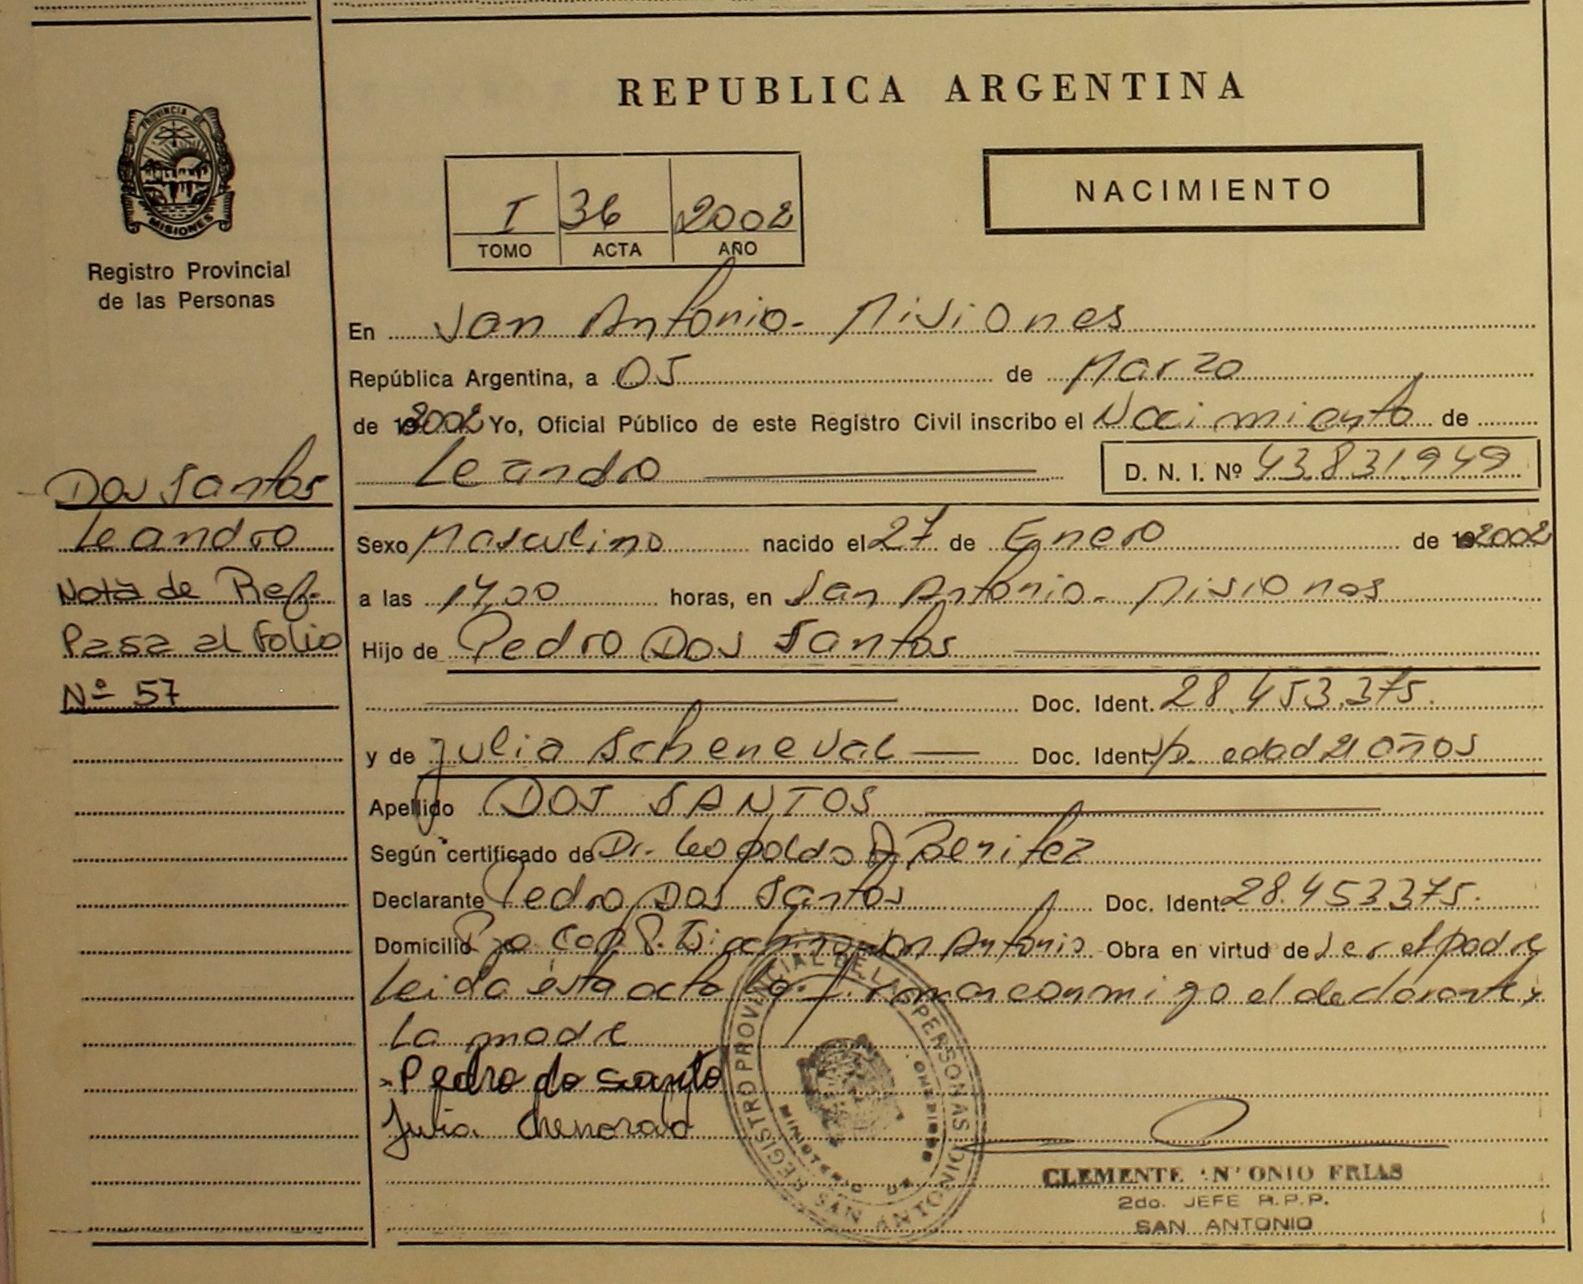 REPUBLICA ARGENTINA
PROVINCIA DE
MISIONES
Registro Provincial
de las Personas
I 36 2002
TOMO ACTA AÑO
NACIMIENTO
En San Antonio- Misiones
República Argentina, a 05 de Marzo
de 2002 Yo, Oficial Público de este Registro Civil inscribo el Nacimiento de
Leandro D. N. I. Nº 43.831.949
Dos Santos
Leandro
Nota de Ref.
Pasa al Folio
Nº 57
Sexo Masculino nacido el 27 de Enero de 2002
a las 17,00 horas, en San Antonio- Misiones
Hijo de Pedro Dos Santos
Doc. Ident. 28.453.375.
y de Julia Scheneval Doc. Ident. edad 21 años
Apellido DOS SANTOS
Según certificado de Dr. Leopoldo Benitez
Declarante Pedro Dos Santos Doc. Ident. 28.453375.
Domicilio San Antonio Obra en virtud de ser el padre
Leida ésta acta la firman conmigo el declarante y
La madre
Pedro do santo
Julia
REGISTRO PROVINCIAL DE LAS PERSONAS
MINISTERIO DE GOBIERNO
SAN ANTONIO
CLEMENTE 'N' ONIO FRIAS
2do. JEFE R.P.P.
SAN ANTONIO